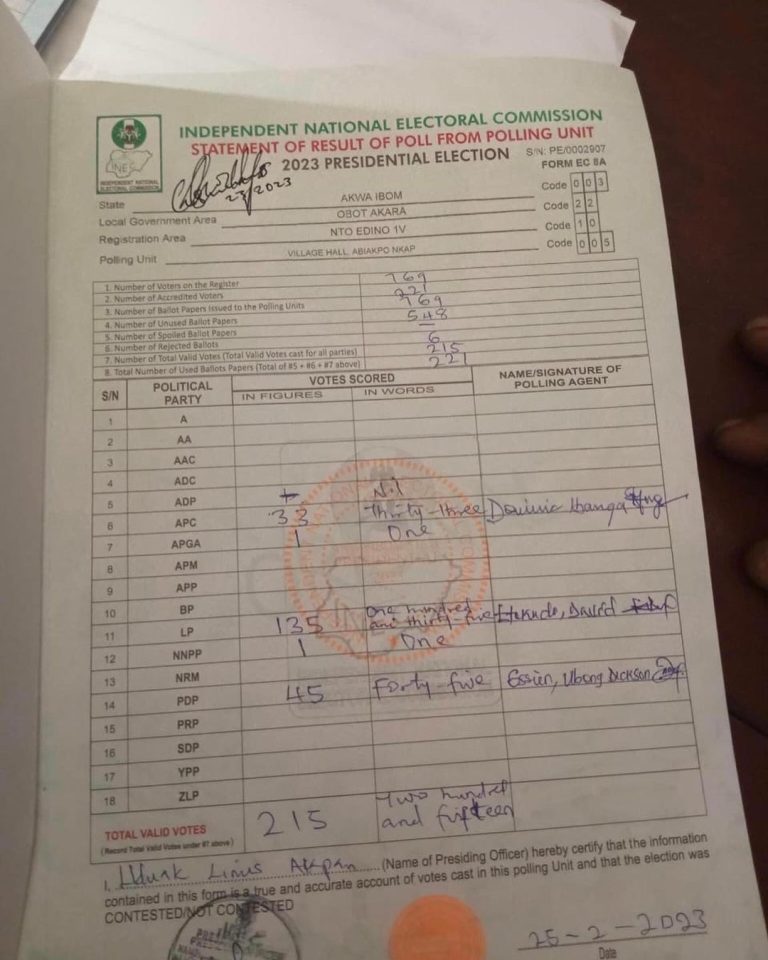 INDEPENDENT NATIONAL ELECTORAL COMMISSION
STATEMENT OF RESULT OF POLL FROM POLLING UNIT
2023 PRESIDENTIAL ELECTION
S/N: PE/0002907
FORM EC 8A
INEC
INDEPENDENT NATIONAL ELECTORAL COMMISSION
23/2023
State AKWA IBOM Code 003
Local Government Area OBOT AKARA Code 22
Registration Area NTO EDINO 1V Code 10
Polling Unit VILLAGE HALL, ABIAKPO NKAP Code 005
1. Number of Voters on the Register 769
2. Number of Accredited Voters 221
3. Number of Ballot Papers Issued to the Polling Units 769
4. Number of Unused Ballot Papers 548
5. Number of Spoiled Ballot Papers —
6. Number of Rejected Ballots 6
7. Number of Total Valid Votes (Total Valid Votes cast for all parties) 215
8. Total Number of Used Ballots Papers (Total of #5 + #6 + #7 above) 221
S/N POLITICAL PARTY VOTES SCORED NAME/SIGNATURE OF POLLING AGENT
IN FIGURES IN WORDS
1 A
2 AA
3 AAC
4 ADC
5 ADP
6 APC 33 Thirty-three Dominic
7 APGA 1 One
8 APM
9 APP
10 BP
11 LP 135 One hundred and thirty-five David
12 NNPP 1 One
13 NRM
14 PDP 45 Forty-five Essien, Ubong Dickson
15 PRP
16 SDP
17 YPP
18 ZLP
TOTAL VALID VOTES 215 Two hundred and fifteen
(Record Total Valid Votes under #7 above)
I, Linus Akpan (Name of Presiding Officer) hereby certify that the information
contained in this form is a true and accurate account of votes cast in this polling Unit and that the election was
CONTESTED/NOT CONTESTED
25-2-2023
Date